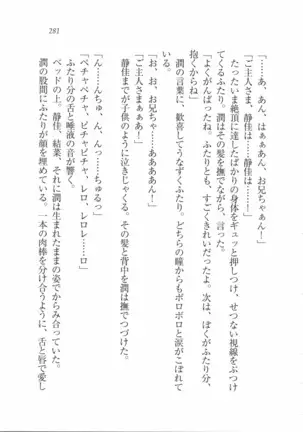 281
「……あ、あん、はぁぁあん、お兄ちゃぁん！」
「ご主人さま……静佳は……静佳は……！」
たったいま絶頂に達したばかりの身体をギュッと押しつけ、せつない視線をぶつけてくるふたり。潤はその髪を撫でながら、言った。
「よくがんばったね。ふたりとも、すごくきれいだったよ。次は、ぼくがふたり分、抱くからね」
潤の言葉に、歓喜してうなずくふたり。どちらの瞳からもボロボロと涙がこぼれている。
「お、お兄ちゃ……ああああん！」
「ご主人さまあ……！」
静佳までが子供のように泣きじゃくる。その髪と背中を潤は撫でつづけた。
「ん、……んちゅう、ん、ん……ちゅるっ」
「ペチャペチャ、ピチャピチャ、レロ、レロレ……ロ」
ふたり分の舌と唾液の音が響く。
ベッドの上。静佳、結菜、それに潤は生まれたままの姿でからみ合っていた。
潤の股間にふたりが顔を埋めている。一本の肉棒を分け合うように、舌と唇で愛し